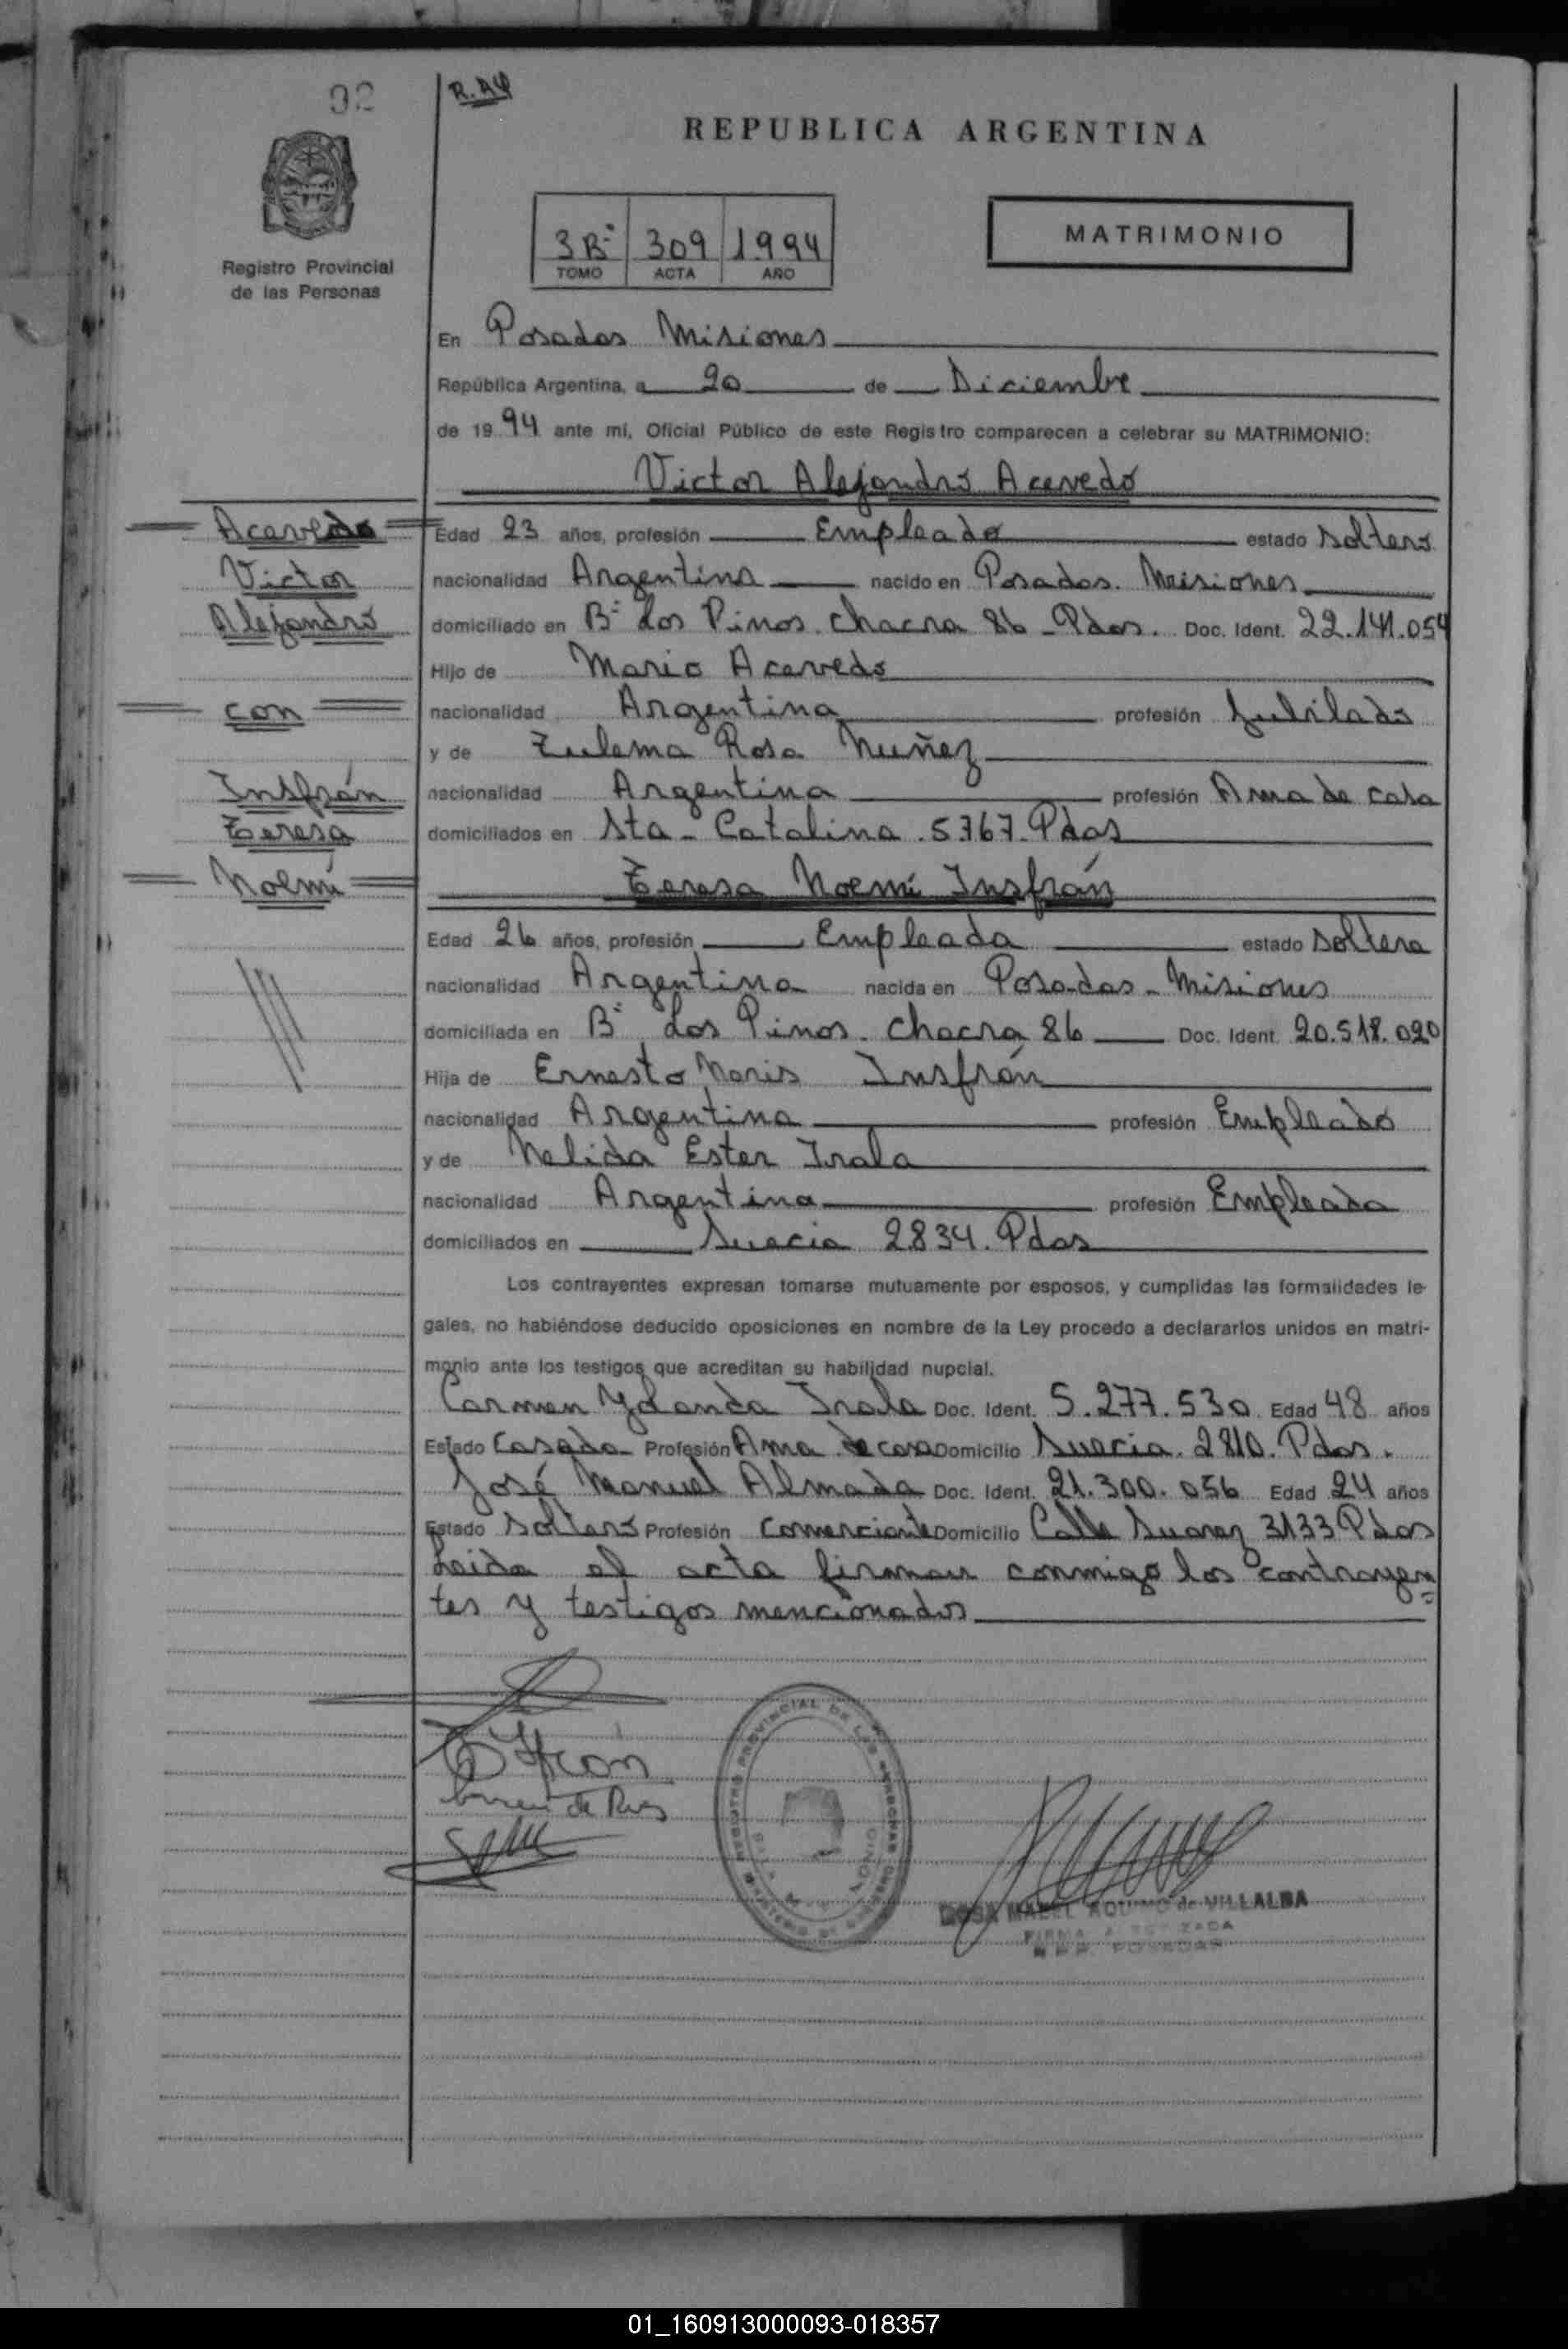 02
R.A4
REPUBLICA ARGENTINA
Registro Provincial
de las Personas
3Bº 309 1994
TOMO ACTA AÑO
MATRIMONIO
En Posadas Misiones
República Argentina, a 20 de Diciembre
de 1994 ante mí, Oficial Público de este Registro comparecen a celebrar su MATRIMONIO:
Victor Alejandro Acevedo
Acevedo
Victor
Alejandro
con
Insfrán
Teresa
Noemí
Edad 23 años, profesión Empleado estado soltero
nacionalidad Argentina nacido en Posadas. Misiones
domiciliado en Bº Los Pinos. Chacra 86 - Pdas. Doc. Ident. 22.141.054
Hijo de Mario Acevedo
nacionalidad Argentina profesión Jubilado
y de Zulema Rosa Nuñez
nacionalidad Argentina profesión Ama de casa
domiciliados en Sta - Catalina. 5767. Pdas
Teresa Noemí Insfrán
Edad 26 años, profesión Empleada estado soltera
nacionalidad Argentina nacida en Posadas - Misiones
domiciliada en Bº Los Pinos. Chacra 86 Doc. Ident. 20.518.020
Hija de Ernesto Insfrán
nacionalidad Argentina profesión Empleado
y de Nelida Ester Irala
nacionalidad Argentina profesión Empleada
domiciliados en Suecia 2834. Pdas
Los contrayentes expresan tomarse mutuamente por esposos, y cumplidas las formalidades le-
gales, no habiéndose deducido oposiciones en nombre de la Ley procedo a declararlos unidos en matri-
monio ante los testigos que acreditan su habilidad nupcial.
Carmen Yolanda Irala Doc. Ident. 5.277.530 Edad 48 años
Estado Casada Profesión Ama de casa Domicilio Suecia. 2810. Pdas.
José Manuel Almada Doc. Ident. 21.300.056 Edad 24 años
Estado soltero Profesión comerciante Domicilio Calle Suarez 3133 Pdas
Leida el acta firman conmigo los contrayen
tes y testigos mencionados
REGISTRO PROVINCIAL DE LAS PERSONAS
ROSA MABEL AQUINO de VILLALBA
FIRMA AUTORIZADA
R.P.P. POSADAS
01_160913000093-018357